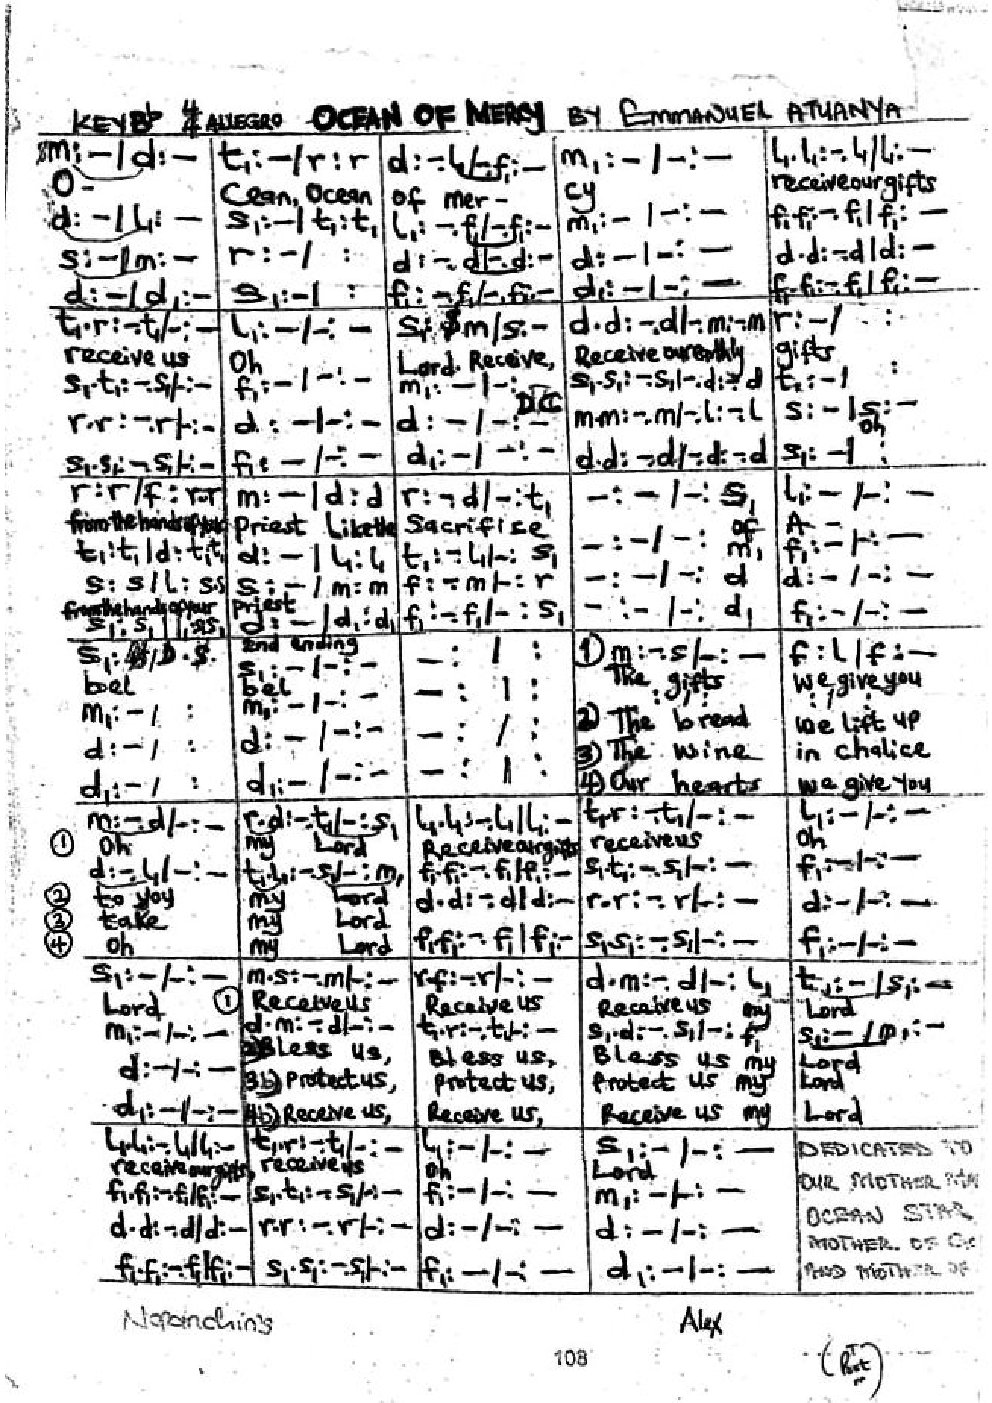 KEY Bb ALLEGRO OCEAN OF MERCY BY EMMANUEL ATUANYA
m:–/d:– t₁:–/r:r d:-.l₁/-.f₁:– m₁:–/–:– l₁.l₁:-.l₁/l₁:–
O- Cean, Ocean of mer- cy receive our gifts
d:–/l₁:– s₁:–/t₁:t₁ l₁:-.f₁/-.f₁:– m₁:–/–:– f₁.f₁:-.f₁/f₁:–
s:–/m:– r:–/ : d:-.d/-.d:– d:–/–:– d.d:-.d/d:–
d:–/d₁:– s₁:–/ : f₁:-.f₁/-.f₁:– d₁:–/–:– f₁.f₁:-.f₁/f₁:–
t₁.r:-.t₁/–:– l₁:–/–:– d.d:-.d/-.m:-.m r:–/ :
receive us Oh Lord Receive, Receive our earthly gifts
s₁.t₁:-.s₁/–:– f₁:–/–:– m₁:–/–: s₁.s₁:-.s₁/-.d:-.d t₁:–/ :
D/C
r.r:-.r/–:– d:–/–:– d:–/–:– m.m:-.m/-.l:-.l s:–/s:–
Oh
s₁.s₁:-.s₁/–:– f₁:–/–:– d₁:–/–:– d.d:-.d/-.d:-.d s₁:–/ :
r:r/f:r.r m:–/d:d r:-.d/–:t₁ –:–/–:s₁ l₁:–/–:–
from the hands of your Priest Like the Sacrifice of A-
t₁:t₁/d:t₁.t₁ d:–/l₁:l₁ t₁:-.l₁/–:s₁ –:–/–:m₁ f₁:–/–:–
s:s/l:s.s s:–/m:m f:-.m/–:r –:–/–:d d:–/–:–
from the hands of your priest
d:–/d₁:d₁ f₁:-.f₁/–:s₁ –:–/–:d₁ f₁:–/–:–
2nd ending
s₁:–/–:– –:/ : ① m:-.s/–:– f:l/f:–
bel bel The gifts we give you
m₁:–/ : m₁:–/–:– –:/ : ② The bread we lift up
d:–/ : d:–/–:– –:/ : ③ The wine in chalice
d₁:–/ : d₁:–/–:– –:/ : ④ Our hearts we give you
m:-.d/–:– r.d:-.t₁/–:s₁ l₁.l₁:-.l₁/l₁:– t₁.r:-.t₁/–:– l₁:–/–:–
① Oh my Lord Receive our gifts receive us Oh
d:-.l₁/–:– t₁.l₁:-.s₁/–:m₁ f₁.f₁:-.f₁/f₁:– s₁.t₁:-.s₁/–:– f₁:–/–:–
② to you my Lord d.d:-.d/d:– r.r:-.r/–:– d:–/–:–
③ take my Lord
④ Oh my Lord f₁.f₁:-.f₁/f₁:– s₁.s₁:-.s₁/–:– f₁:–/–:–
s₁:–/–:– m.s:-.m/–:– r.f:-.r/–:– d.m:-.d/–:l₁ t₁:–/s₁:–
Lord ① Receive us Receive us Receive us my Lord
m₁:–/–:– d.m:-.d/–:– t₁.r:-.t₁/–:– s₁.d:-.s₁/–:f₁ s₁:–/m₁:–
Bless us, Bless us, Bless us my Lord
d:–/–:– 3b) Protect us, protect us, Protect us my Lord
d₁:–/–:– 4b) Receive us, Receive us, Receive us my Lord
l₁.l₁:-.l₁/l₁:– t₁.r:-.t₁/–:– l₁:–/–:– s₁:–/–:– DEDICATED TO
receive our gifts, receive us Oh Lord
f₁.f₁:-.f₁/f₁:– s₁.t₁:-.s₁/–:– f₁:–/–:– m₁:–/–:– OUR MOTHER
d.d:-.d/d:– r.r:-.r/–:– d:–/–:– d:–/–:– OCEAN STAR
MOTHER OF
f₁.f₁:-.f₁/f₁:– s₁.s₁:-.s₁/–:– f₁:–/–:– d₁:–/–:– AND MOTHER OF
Alex
108